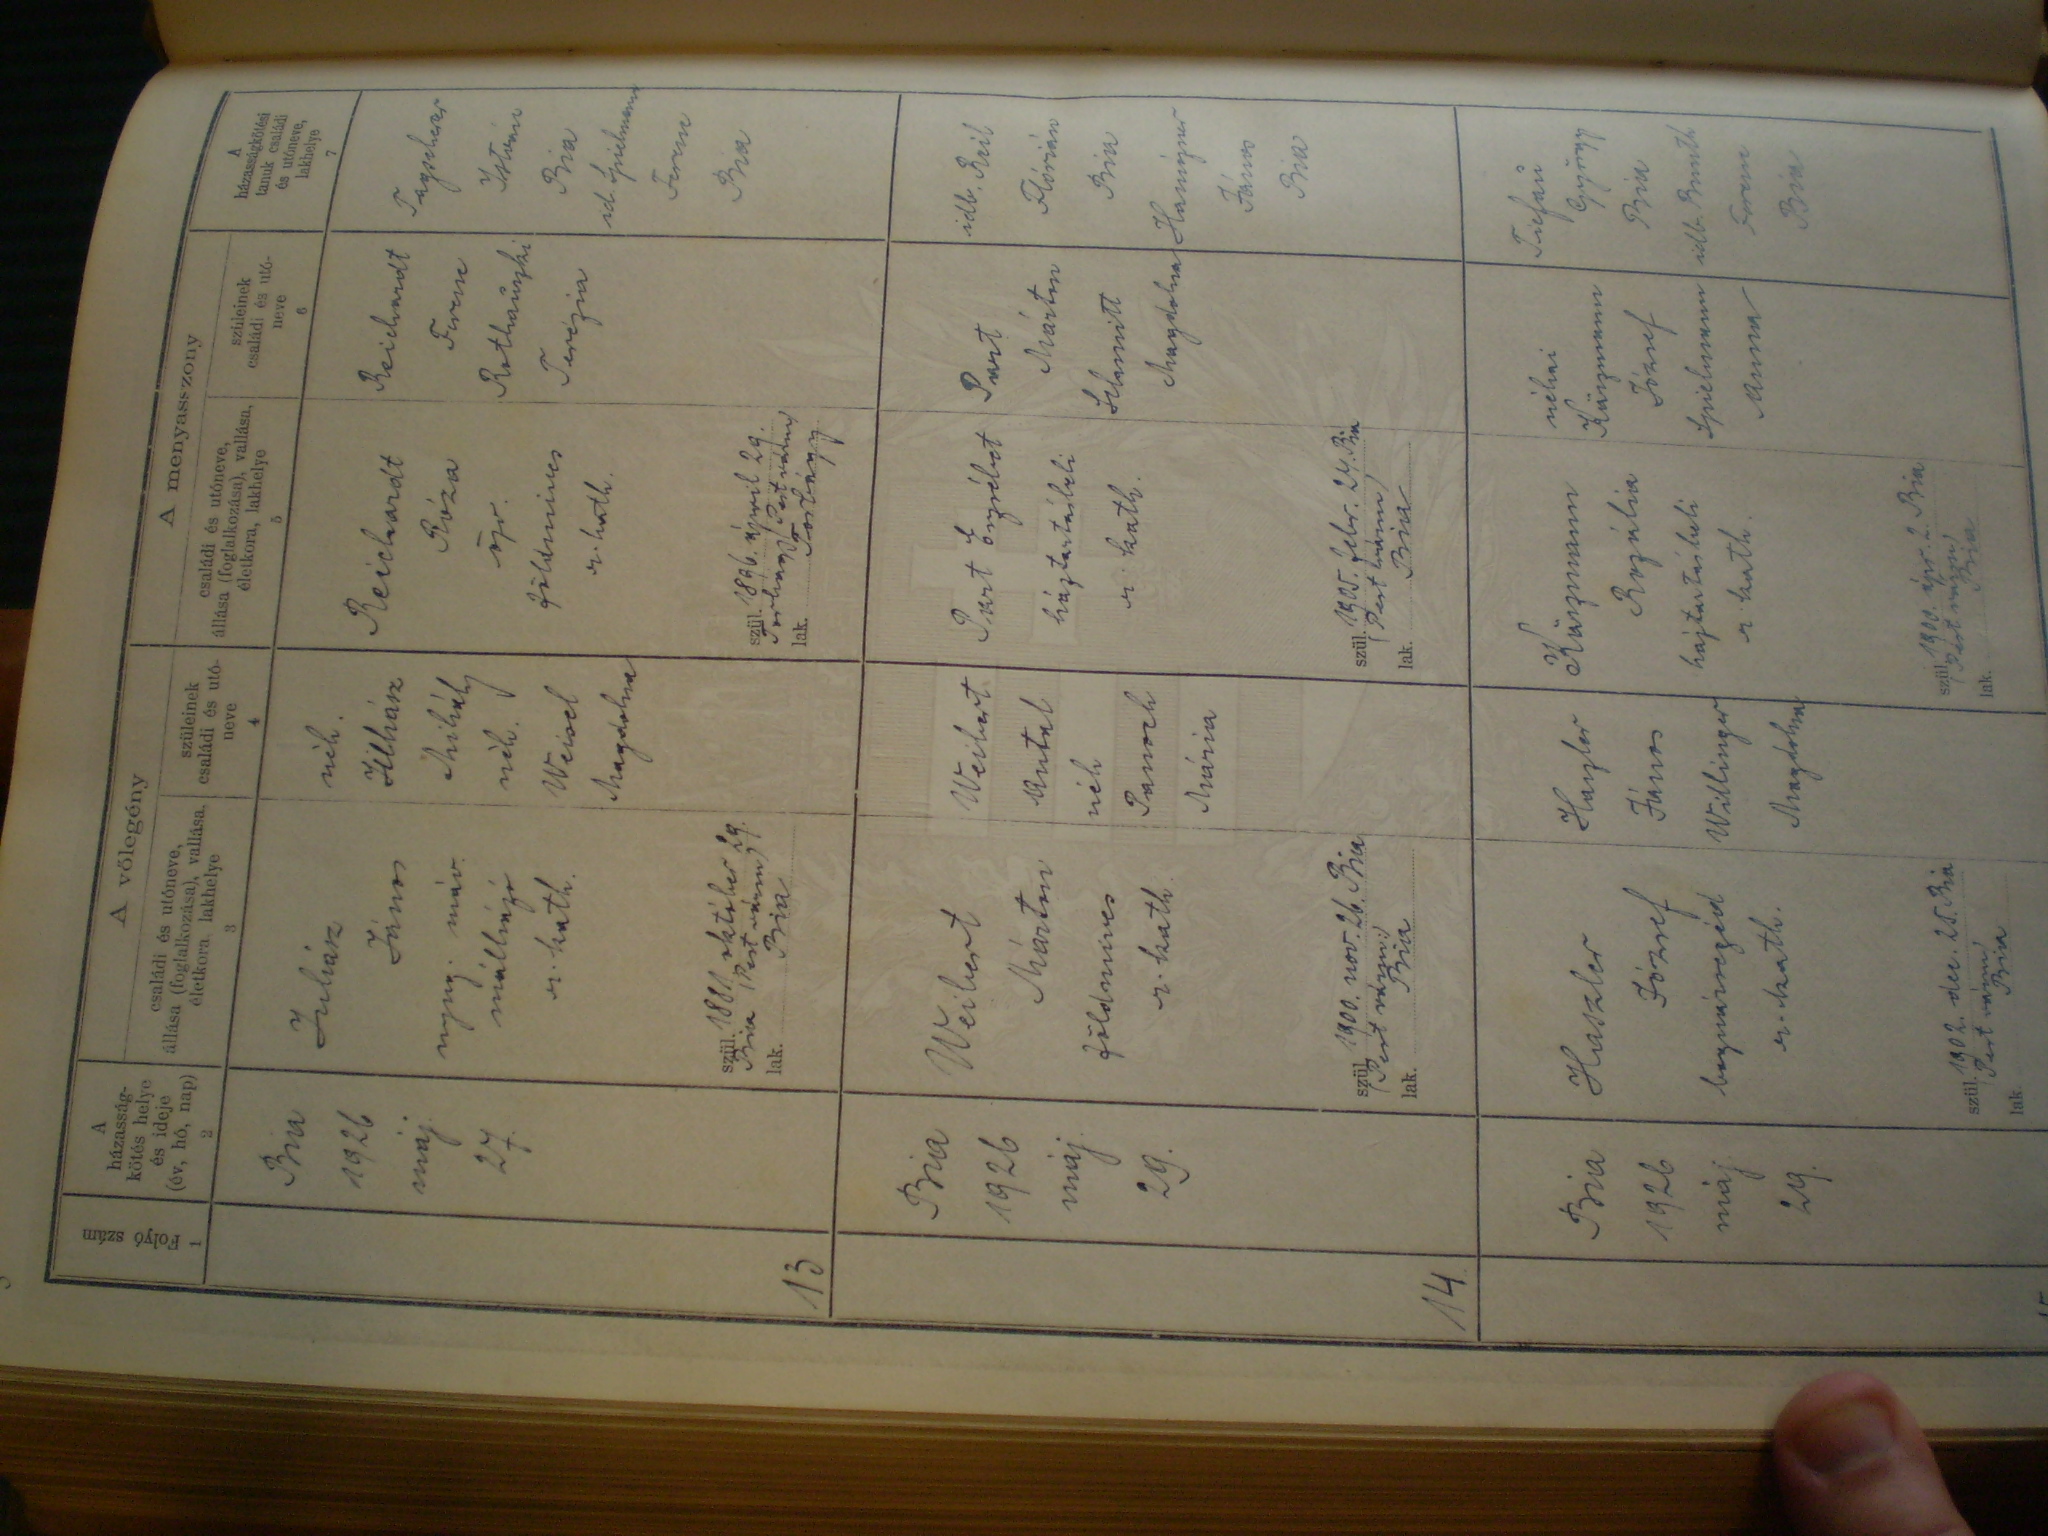 A vőlegény
A menyasszony
Folyó szám
A
házasság-
kötés helye
és ideje
(év, hó, nap)
családi és utóneve,
állása (foglalkozása), vallása,
életkora, lakhelye
szüleinek
családi és utó-
neve
családi és utóneve,
állása (foglalkozása), vallása,
életkora, lakhelye
szüleinek
családi és utó-
neve
A
házasságkötési
tanuk családi
és utóneve,
lakhelye
1
2
3
4
5
6
7
13
Bia
1926
máj.
27.
Juhász
János
nyug. máv.
r. kath.
szül. 1881. október 29.
Bia (Pest várm)
lak. Bia
néh.
Juhász
Mihály
néh.
Weisel
Magdolna
Reichardt
Róza
öv.
földmíves
r. kath.
szül. 1896. április 29.
lak. Torbágy
Reichardt
Ferenc
Terézia
István
Bia
id. Spielmann
Ferenc
Bia
14
Bia
1926
máj.
29.
Weibert
Márton
földmíves
r. kath.
szül. 1900. nov. 26. Bia
(Pest várm)
lak. Bia
Weibert
Antal
néh
Mária
Part Erzsébet
háztartásbeli
r. kath.
szül. 1905. febr. 24. Bia
(Pest várm)
lak. Bia
Part
Márton
Schmitt
Magdolna
idb. Reil
Flórián
Bia
János
Bia
Bia
1926
máj.
29.
Haszler
József
bognársegéd
r. kath.
szül. 1902. dec. 25. Bia
(Pest várm)
lak. Bia
Haszler
János
Willinger
Magdolna
Künzmann
Rozália
háztartásbeli
r. kath.
szül. 1900. ápr. 2. Bia
lak. Bia
néhai
Künzmann
József
Spielmann
Anna
György
Bia
Ferenc
Bia